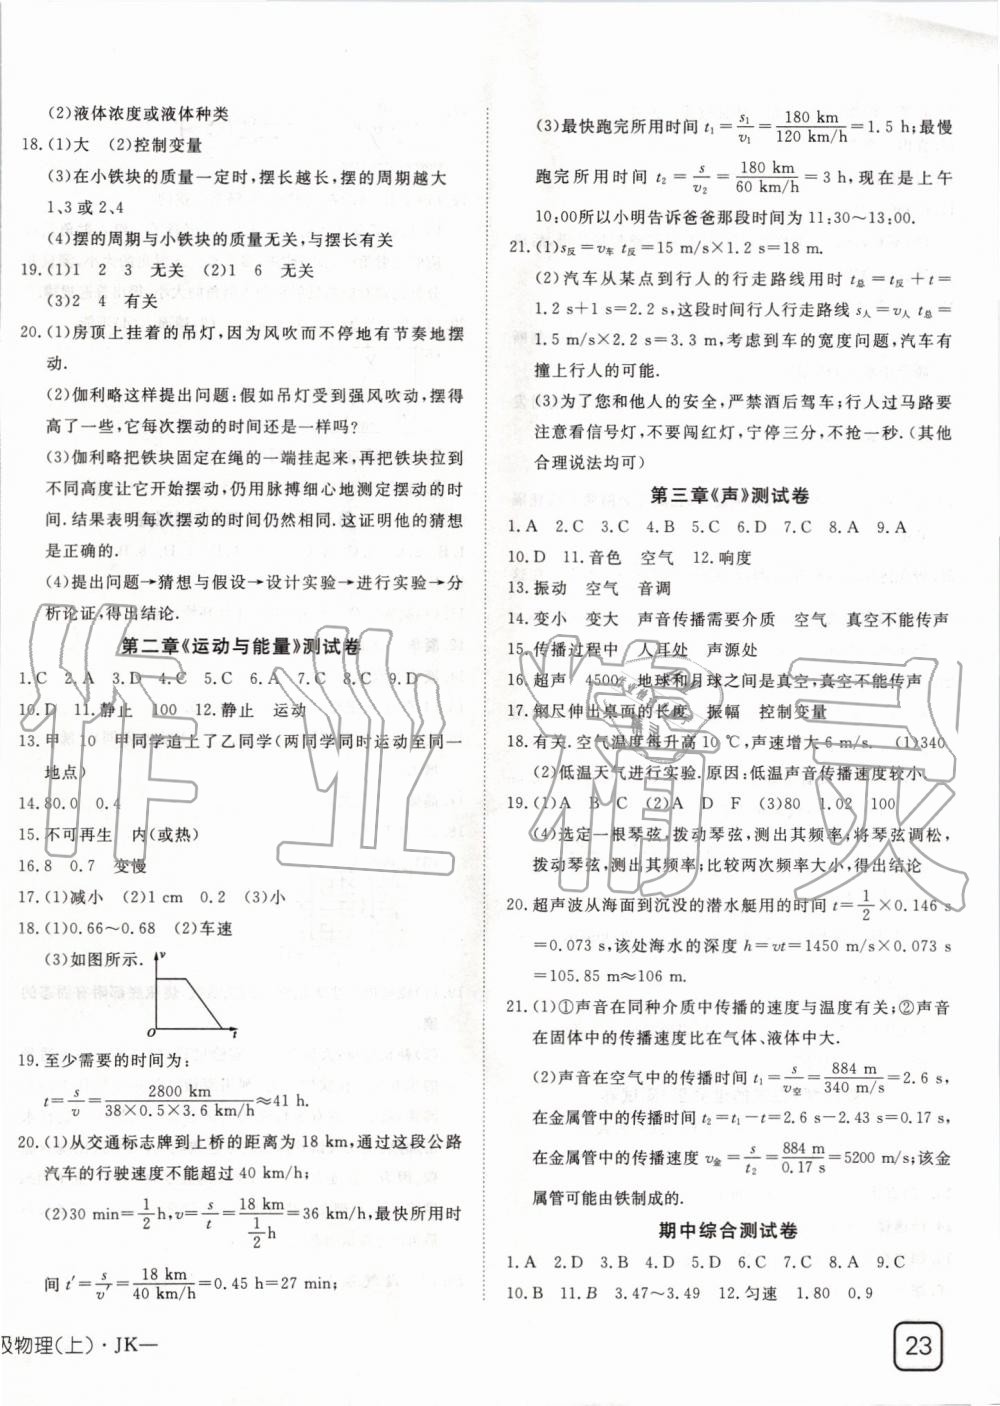 (2)液体浓度或液体种类
18.(1)大 (2)控制变量
(3)在小铁块的质量一定时,摆长越长,摆的周期越大
1、3或2、4
(4)摆的周期与小铁块的质量无关,与摆长有关
19.(1)1 2 3 无关 (2)1 6 无关
(3)2 4 有关
20.(1)房顶上挂着的吊灯,因为风吹而不停地有节奏地摆
动.
(2)伽利略这样提出问题:假如吊灯受到强风吹动,摆得
高了一些,它每次摆动的时间还是一样吗?
(3)伽利略把铁块固定在绳的一端挂起来,再把铁块拉到
不同高度让它开始摆动,仍用脉搏细心地测定摆动的时
间.结果表明每次摆动的时间仍然相同.这证明他的猜想
是正确的.
(4)提出问题→猜想与假设→设计实验→进行实验→分
析论证,得出结论.
第二章《运动与能量》测试卷
1.C 2.A 3.D 4.C 5.C 6.A 7.C 8.C 9.D
10.D 11.静止 100 12.静止 运动
13.甲 10 甲同学追上了乙同学(两同学同时运动至同一
地点)
14.80.0 0.4
15.不可再生 内(或热)
16.8 0.7 变慢
17.(1)减小 (2)1 cm 0.2 (3)小
18.(1)0.66~0.68 (2)车速
(3)如图所示.
v
O t
19.至少需要的时间为:
t=s/v=2800 km/(38×0.5×3.6 km/h)≈41 h.
20.(1)从交通标志牌到上桥的距离为18 km,通过这段公路
汽车的行驶速度不能超过40 km/h;
(2)30 min=1/2 h,v=s/t=18 km/(1/2 h)=36 km/h,最快所用时
间t′=s/v′=18 km/(40 km/h)=0.45 h=27 min;
(3)最快跑完所用时间t₁=s₁/v₁=180 km/(120 km/h)=1.5 h;最慢
跑完所用时间t₂=s/v₂=180 km/(60 km/h)=3 h,现在是上午
10:00所以小明告诉爸爸那段时间为11:30~13:00.
21.(1)s反=v车 t反=15 m/s×1.2 s=18 m.
(2)汽车从某点到行人的行走路线用时t总=t反+t=
1.2 s+1 s=2.2 s,这段时间行人行走路线s人=v人 t总=
1.5 m/s×2.2 s=3.3 m,考虑到车的宽度问题,汽车有
撞上行人的可能.
(3)为了您和他人的安全,严禁酒后驾车;行人过马路要
注意看信号灯,不要闯红灯,宁停三分,不抢一秒.(其他
合理说法均可)
第三章《声》测试卷
1.A 2.C 3.C 4.B 5.C 6.D 7.C 8.A 9.A
10.D 11.音色 空气 12.响度
13.振动 空气 音调
14.变小 变大 声音传播需要介质 空气 真空不能传声
15.传播过程中 人耳处 声源处
16.超声 4500 地球和月球之间是真空,真空不能传声
17.钢尺伸出桌面的长度 振幅 控制变量
18.有关.空气温度每升高10 ℃,声速增大6 m/s. (1)340
(2)低温天气进行实验.原因:低温声音传播速度较小
19.(1)A B C (2)A D F (3)80 1.02 100
(4)选定一根琴弦,拨动琴弦,测出其频率;将琴弦调松,
拨动琴弦,测出其频率;比较两次频率大小,得出结论
20.超声波从海面到沉没的潜水艇用的时间t=1/2×0.146 s
=0.073 s,该处海水的深度h=vt=1450 m/s×0.073 s
=105.85 m≈106 m.
21.(1)①声音在同种介质中传播的速度与温度有关;②声音
在固体中的传播速度比在气体、液体中大.
(2)声音在空气中的传播时间t₁=s/v空=884 m/(340 m/s)=2.6 s,
在金属管中的传播时间t₂=t₁-t=2.6 s-2.43 s=0.17 s,
在金属管中的传播速度v金=s/t₂=884 m/0.17 s=5200 m/s;该金
属管可能由铁制成的.
期中综合测试卷
1.A 2.D 3.B 4.D 5.C 6.C 7.C 8.A 9.C
10.B 11.B 3.47~3.49 12.匀速 1.80 0.9
级物理(上)·JK—
23
作业精灵